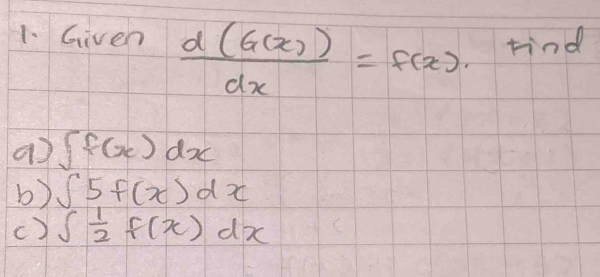 1. Given d(G(x))/dx = f(x). Find
a) ∫f(x) dx
b) ∫5 f(x) dx
c) ∫ 1/2 f(x) dx